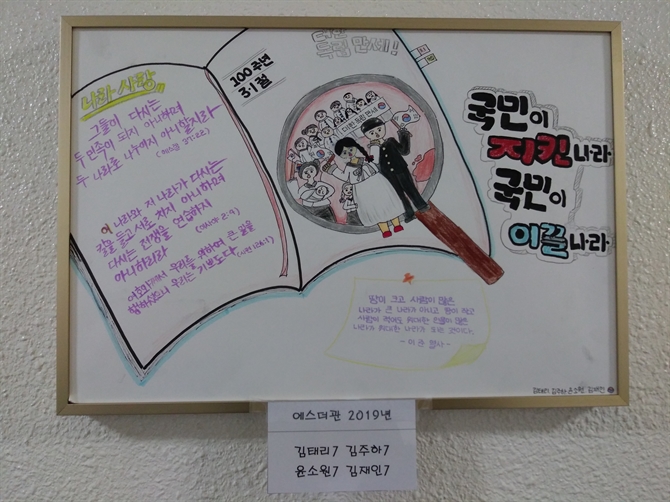 나라 사랑
그들이 다시는
두 민족이 되지 아니하며
두 나라로 나누이지 아니할지라
(에스겔 37:22)
이 나라와 저 나라가 다시는
칼을 들고 서로 치지 아니하며
다시는 전쟁을 연습하지
아니하리라
여호와께서 우리를 위하여 큰 일을
행하셨으니 우리는 기쁘도다 (시편 126:3)
100주년
3·1절
대한
독립 만세!
대한 독립 만세
국민이
지킨 나라
국민이
이끌 나라
땅이 크고 사람이 많은
나라가 큰 나라가 아니고 땅이 작고
사람이 적어도 위대한 인물이 많은
나라가 위대한 나라가 되는 것이다.
- 이 준 열사 -
김태리 김주하 윤소원 김재인
에스더관 2019년
김태리7 김주하7
윤소원7 김재인7